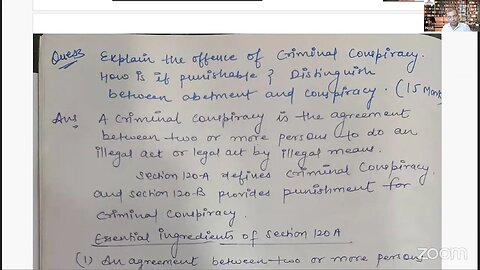 Ques Explain the offence of Criminal Conspiracy.
How is it punishable? Distinguish
between abetment and conspiracy. (15 Mark
Ans A Criminal Conspiracy is the agreement
between two or more persons to do an
illegal act or legal act by illegal means.
Section 120-A defines Criminal Conspiracy
and section 120-B provides punishment for
Criminal Conspiracy.
Essential ingredients of Section 120A
(1) An agreement between two or more persons
zoom